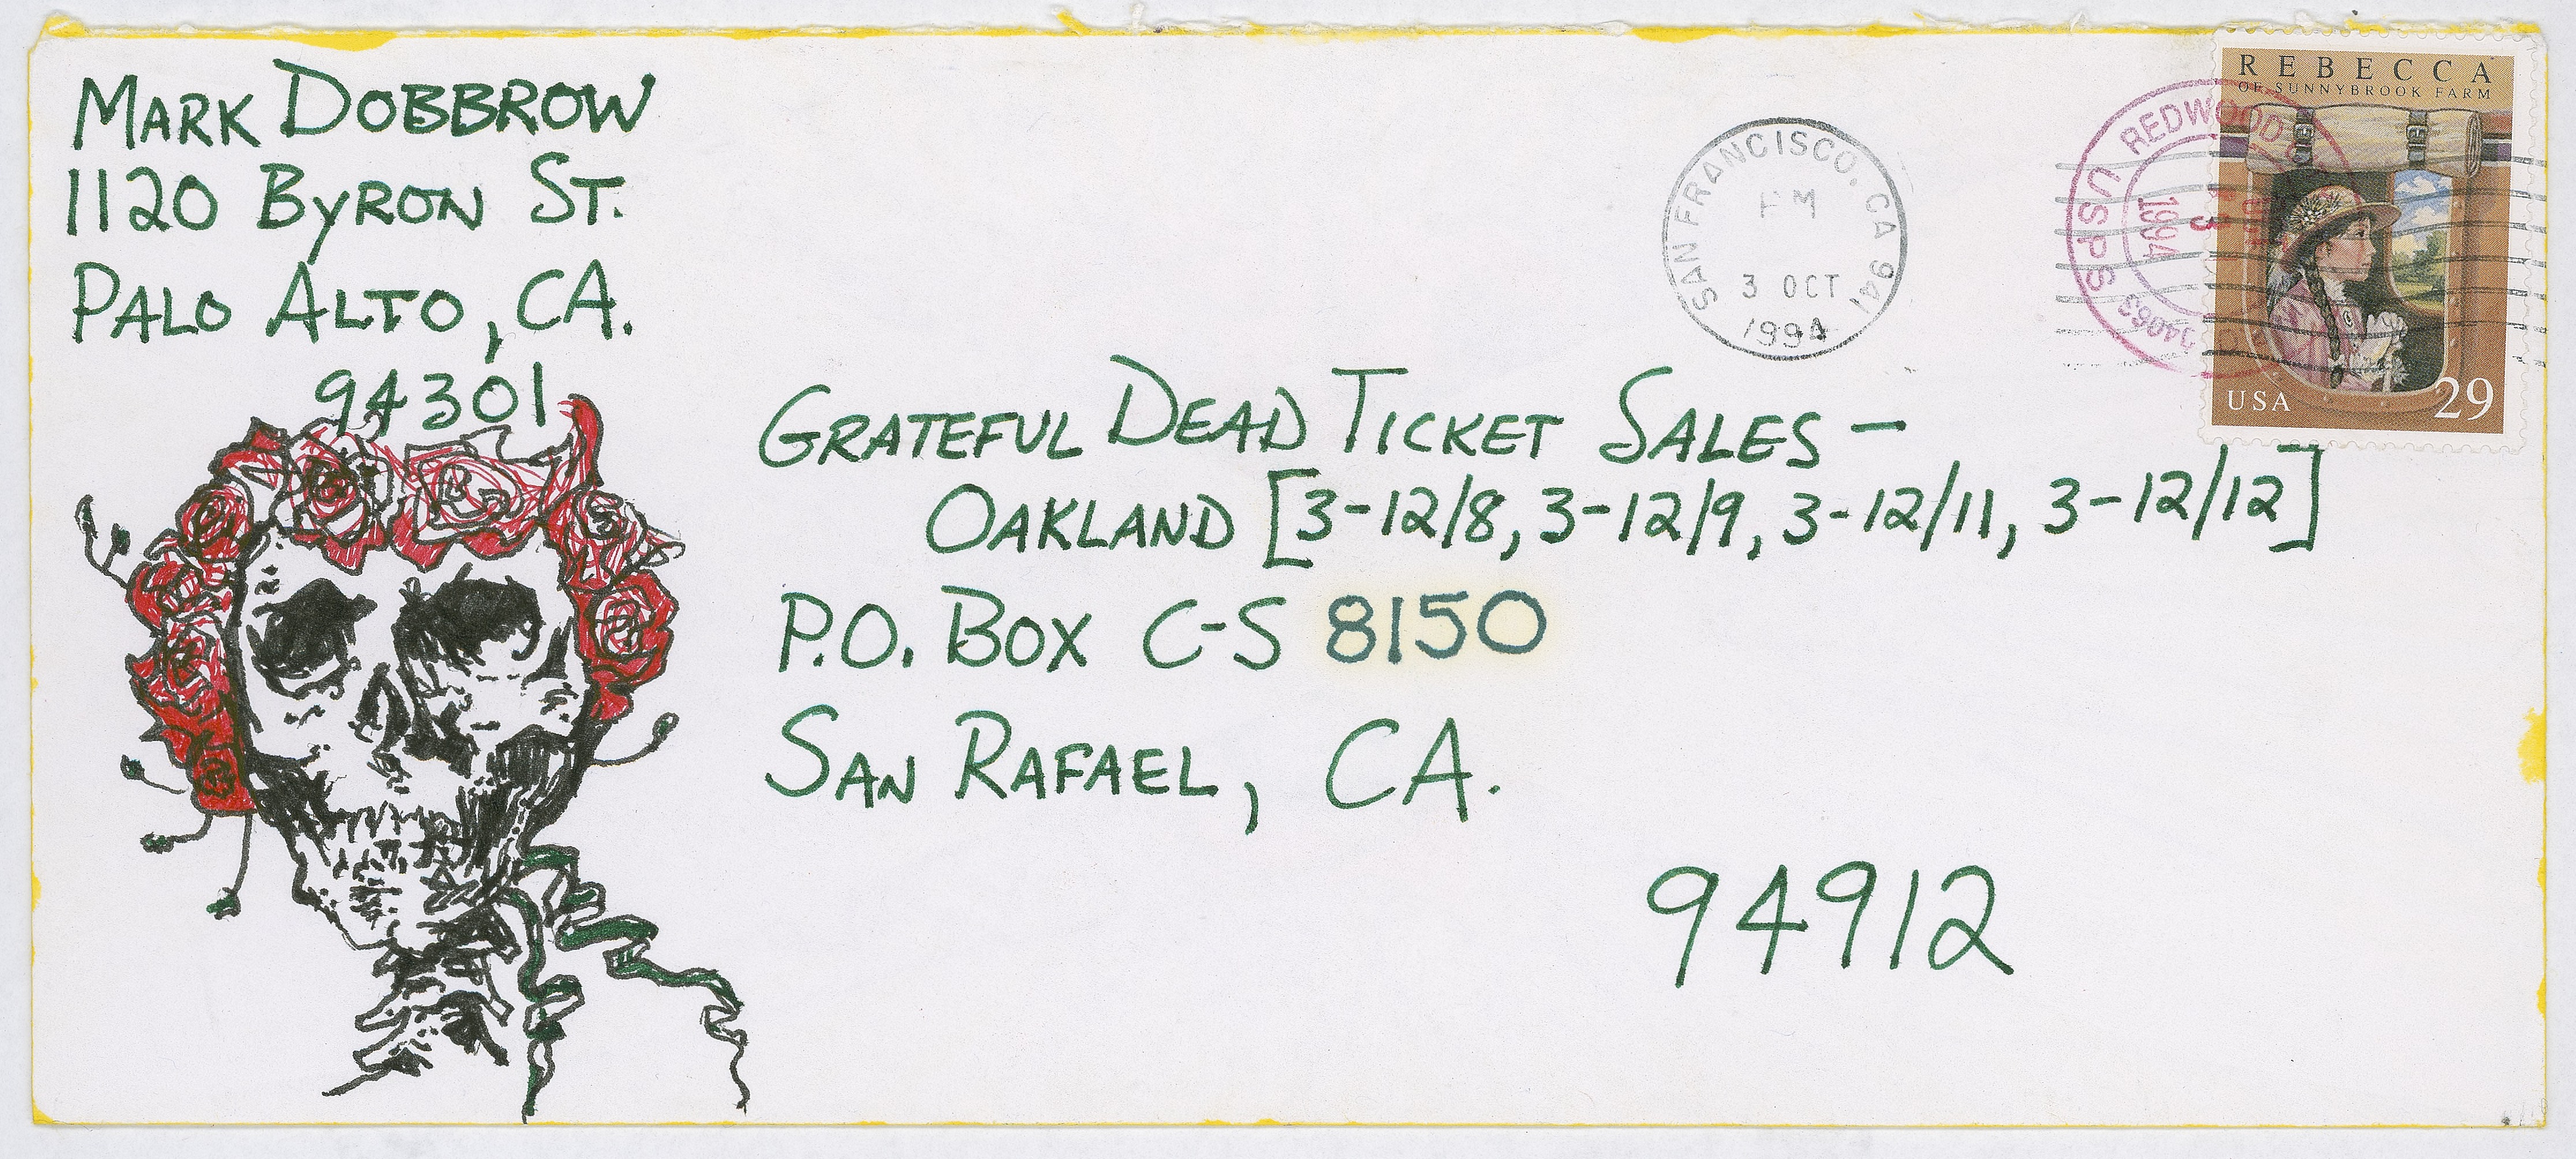 MARK DOBBROW
1120 BYRON ST.
PALO ALTO, CA.
94301
GRATEFUL DEAD TICKET SALES –
OAKLAND [3-12/8, 3-12/9, 3-12/11, 3-12/12]
P.O. BOX C-S 8150
SAN RAFAEL, CA.
94912
SAN FRANCISCO, CA 941
PM
3 OCT
1994
REDWOOD
USPS
94063
3
1994
REBECCA
OF SUNNYBROOK FARM
USA 29